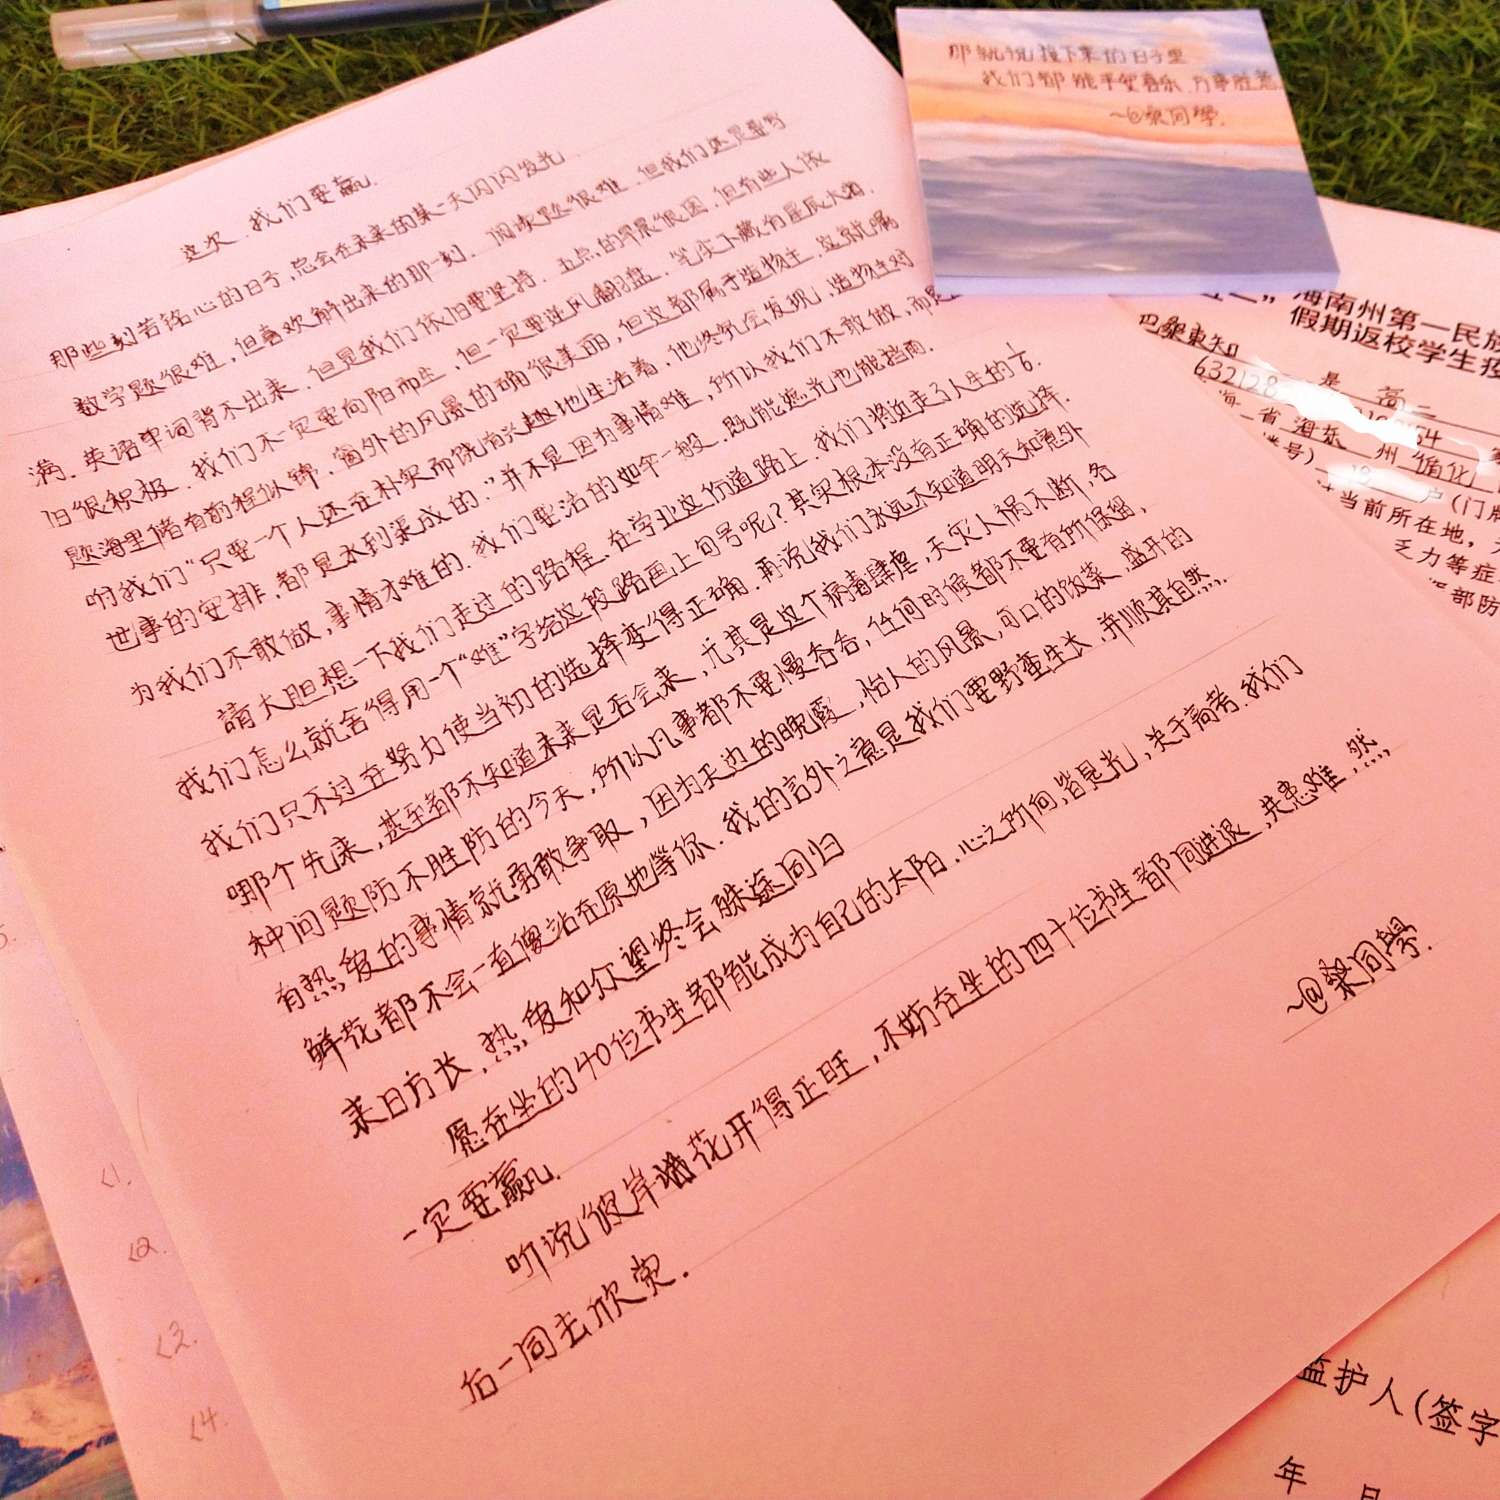 那就祝接下来的日子里
我们都能平安喜乐,万事胜意.
~@黎同學.
这次,我们要赢.
那些刻苦铭心的日子,总会在未来的某一天闪闪发光.
数学题很难,但喜欢解出来的那一刻.阅读题很难,但我们还是要写
满.英语单词背不出来,但是我们依旧要坚持.五点的早晨很困,但有些人依
旧很积极.我们不一定要向阳而生,但一定要逆风翻盘.笔尖下藏有星辰大海.
题海里储有前程似锦.窗外的风景的确很美丽,但这都属于造物主.这就嘱
咐我们“只要一个人还在朴实而饶有兴趣地生活着,他终究会发现,造物主对
世事的安排,都是水到渠成的.”并不是因为事情难,所以我们不敢做,而是
为我们不敢做,事情才难的.我们要活的如伞一般.既能遮光也能挡雨.
請大胆想一下我们走过的路程.在学业这份道路上,我们将近走了人生的1/6.
我们怎么就舍得用一个“难”字给这段路画上句号呢?其实根本没有正确的选择.
我们只不过在努力使当初的选择变得正确.再说我们永远不知道明天和意外
哪个先来,甚至都不知道未来是否会来,尤其是这个病毒肆虐,天灾人祸不断,各
种问题防不胜防的今天,所以凡事都不要慢吞吞,任何时候都不要有所保留,
有热爱的事情就勇敢争取,因为天边的晚霞,怡人的风景,可口的饭菜,盛开的
鲜花都不会一直傻站在原地等你.我的言外之意是我们要野蛮生长,并顺其自然,
来日方长,热爱和众望终会殊途同归
愿在坐的40位书生都能成为自己的太阳.心之所向,皆是光,关于高考.我们
一定要赢.
听说彼岸花开得正旺,不妨在坐的四十位书生都同进退,共患难,然
后一同去欣赏.
~@黎同學.
海南州第一民族
假期返校学生疫
巴黎東知
632128
是 高二
海 省 海东 州 循化
楼号) 户(门牌
当前所在地,
乏力等症
部防
监护人(签字
年 月
<1.
<2.
<3.
<4.